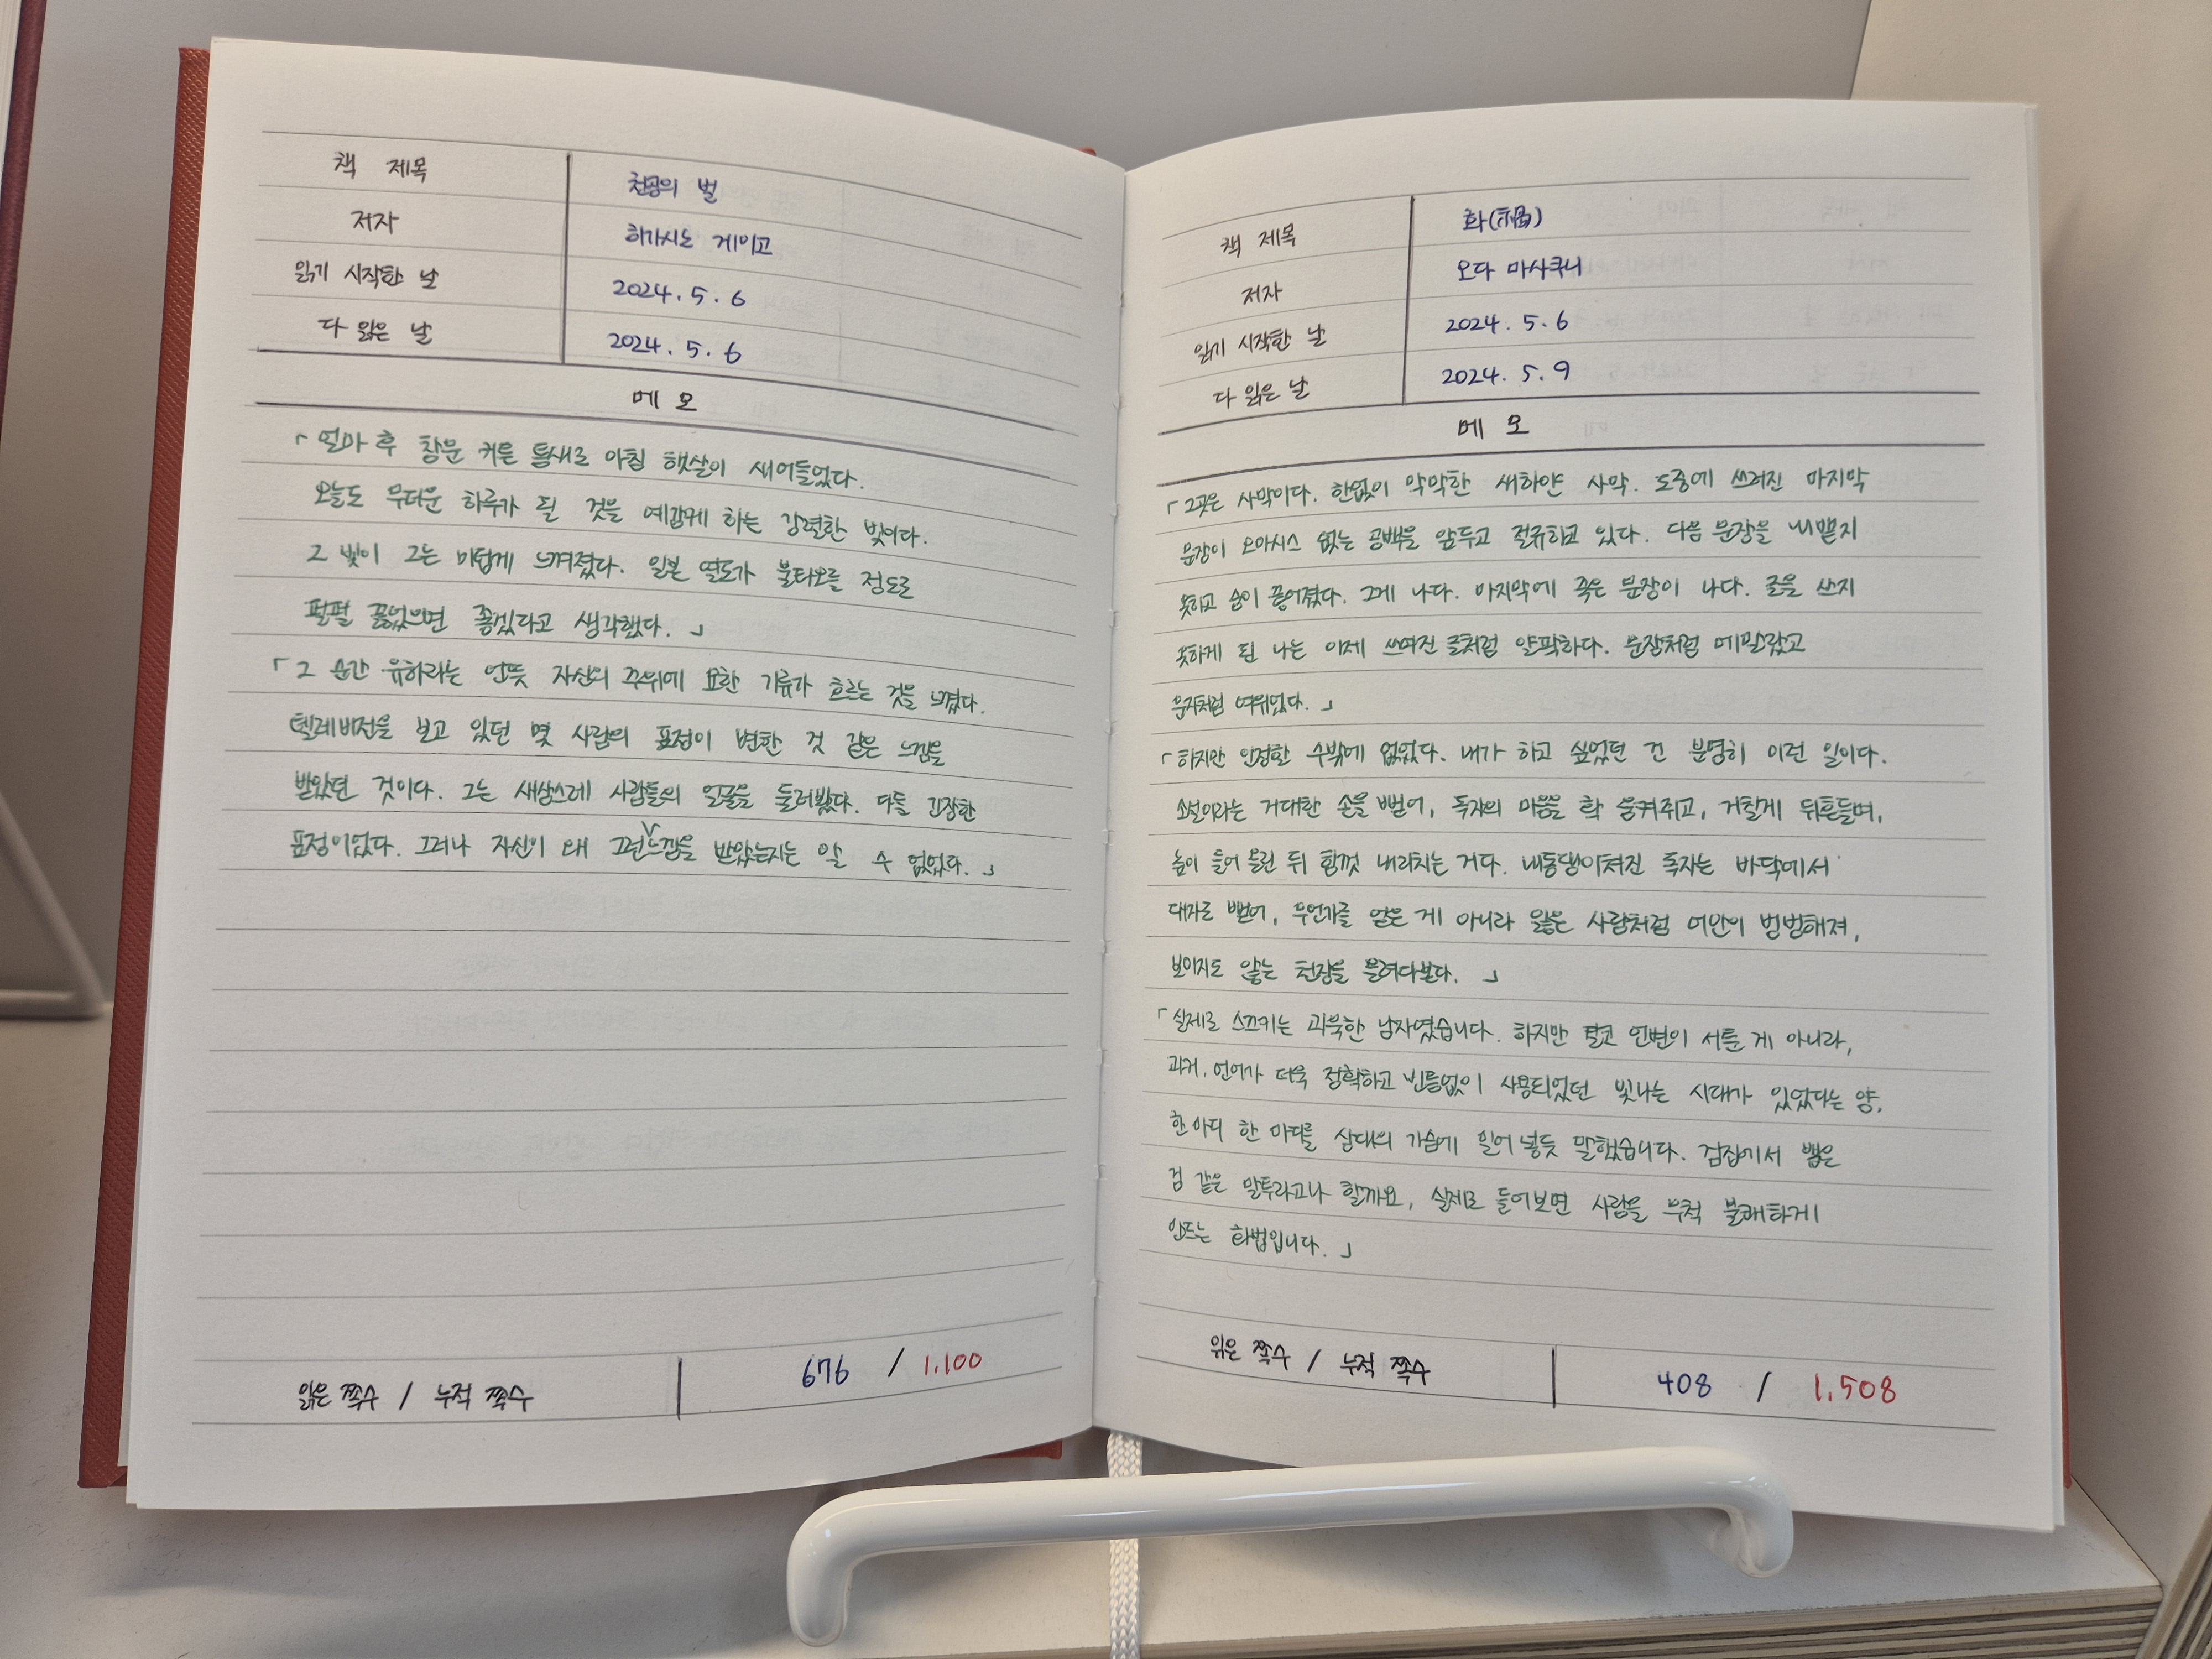 책 제목 천공의 벌
저자 히가시노 게이고
읽기 시작한 날 2024. 5. 6
다 읽은 날 2024. 5. 6
메 모
「얼마 후 창문 커튼 틈새로 아침 햇살이 새어들었다.
오늘도 무더운 하루가 될 것을 예감케 하는 강렬한 빛이다.
그 빛이 그는 미덥게 느껴졌다. 일본 열도가 불타오를 정도로
펄펄 끓었으면 좋겠다고 생각했다.」
「그 순간 유하라는 언뜻 자신의 주위에 묘한 기류가 흐르는 것을 느꼈다.
텔레비전을 보고 있던 몇 사람의 표정이 변한 것 같은 느낌을
받았던 것이다. 그는 새삼스레 사람들의 얼굴을 둘러봤다. 다들 긴장한
표정이었다. 그러나 자신이 왜 그런 느낌을 받았는지는 알 수 없었다.」
읽은 쪽수 / 누적 쪽수 676 / 1,100
책 제목 화(禍)
저자 오다 마사쿠니
읽기 시작한 날 2024. 5. 6
다 읽은 날 2024. 5. 9
메 모
「그곳은 사막이다. 한없이 막막한 새하얀 사막. 도중에 쓰러진 마지막
문장이 오아시스 없는 공백을 앞두고 절규하고 있다. 다음 문장을 내뱉지
못하고 숨이 끊어졌다. 그게 나다. 마지막에 죽은 문장이 나다. 글을 쓰지
못하게 된 나는 이제 쓰여진 글처럼 얄팍하다. 문장처럼 메말랐고
문자처럼 여위었다.」
「하지만 인정할 수밖에 없었다. 내가 하고 싶었던 건 분명히 이런 일이다.
소설이라는 거대한 손을 뻗어, 독자의 마음을 확 움켜쥐고, 거칠게 뒤흔들며,
높이 들어 올린 뒤 힘껏 내리치는 거다. 내동댕이쳐진 독자는 바닥에서
대자로 뻗어, 무언가를 얻은 게 아니라 잃은 사람처럼 어안이 벙벙해져,
보이지도 않는 천장을 올려다본다.」
「실제로 스끼키는 과묵한 남자였습니다. 하지만 결코 언변이 서툰 게 아니라,
과거, 언어가 더욱 정확하고 빈틈없이 사용되었던 빛나는 시대가 있었다는 양,
한 마디 한 마디를 상대의 가슴에 밀어 넣듯 말했습니다. 검집에서 뽑은
검 같은 말투라고나 할까요, 실제로 들어보면 사람을 무척 불쾌하게
만드는 화법입니다.」
읽은 쪽수 / 누적 쪽수 408 / 1,508